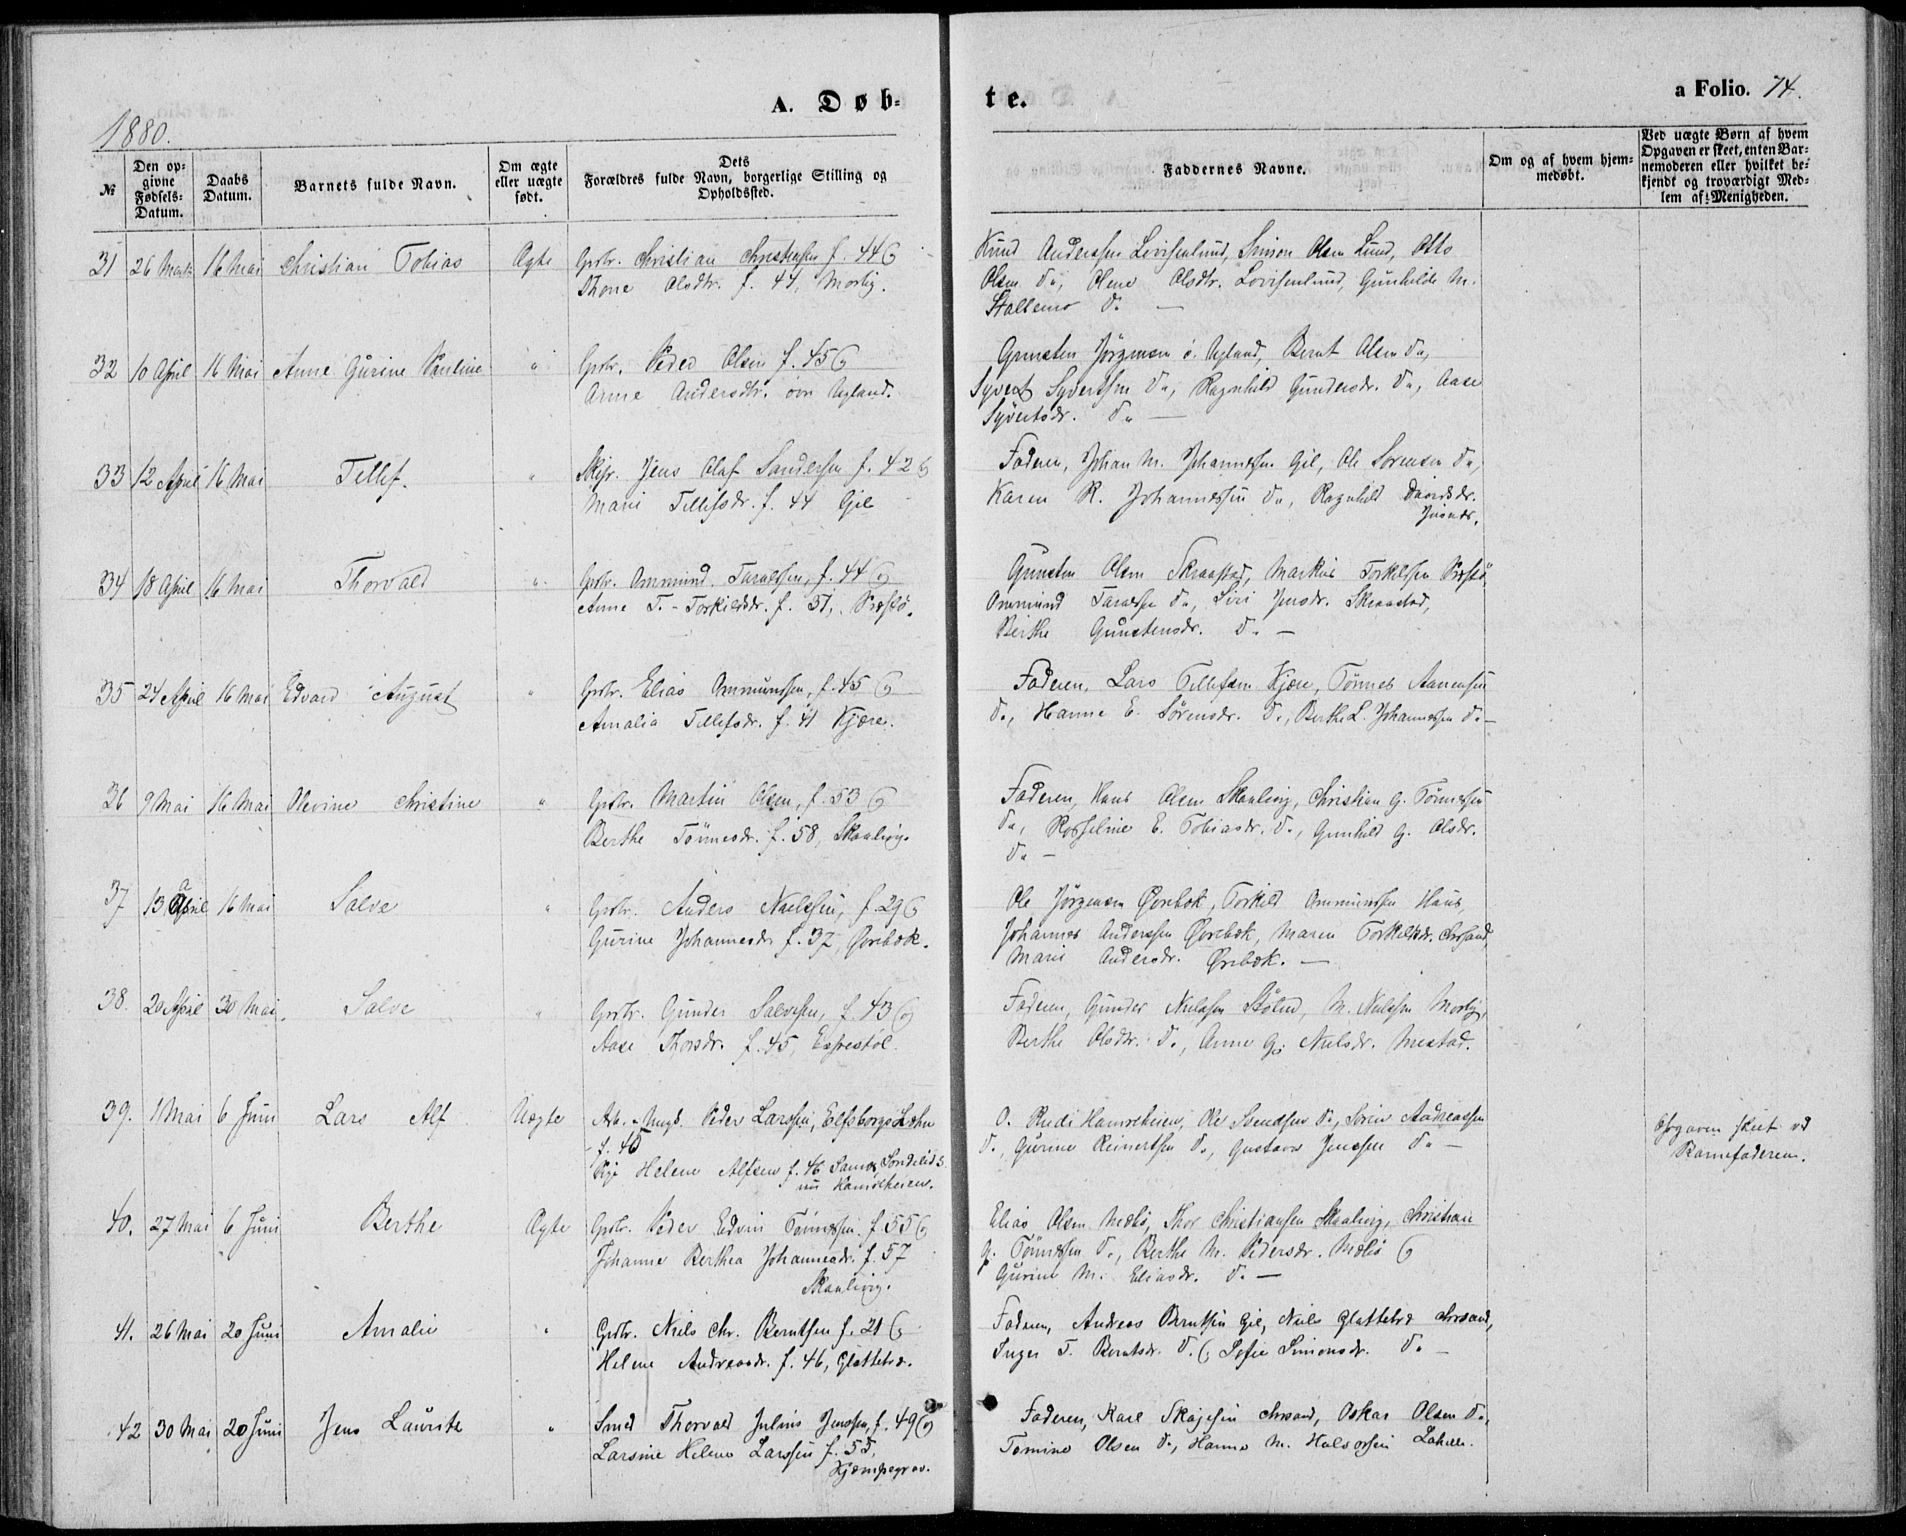 1880.
A. Døb-
te.
a Folio. 74.
№
Den op-
givne
Fødsels-
Datum.
Daabs
Datum.
Barnets fulde Navn.
Om ægte
eller uægte
født.
Dets
Forældres fulde Navn, borgerlige Stilling og
Opholdssted.
Faddernes Navne.
Om og af hvem hjem-
medøbt.
Ved uægte Børn af hvem
Opgaven er skeet, enten Bar-
nemoderen eller hvilket be-
kjendt og troværdigt Med-
lem af Menigheden.
31 26 Marts 16 Mai Christian Tobias Ægte Grdbr. Christian Christensen f. 44 og
Thone Olsdtr. f. 44, Moslig.
Knud Anderssen Lovisenlund, Simon Olsen Lund, Otto
Olsen do, Olene Olsdtr. Lovisenlund, Gunhilde M.
Stallemo do —
32 10 April 16 Mai Anne Gurine Pauline " Grdbr. Peder Olsen f. 45 og
Anne Andersdtr. øvre Augland.
Gunsten Jörgensen ö. Augland, Bernt Olsen do,
Syvert Syvertsen do, Ragnhild Gundersdr. do, Aase
Syvertsdr. do —
33 12 April 16 Mai Tellef. " Skpr. Jens Olaf Sandersen f. 42 og
Marie Tellefsdr. f. 44 Gil
Faderen, Johan M. Johannessen Gil, Ole Sørensen do,
Karen R. Johannessen do, Ragnhild Davidsdr.
34 18 April 16 Mai Thorvald " Grdbr. Ommund Taraldsen, f. 44 og
Anne T. Torkildsdr. f. 51, Præstø.
Gunsten Olsen Skraastad, Markus Torkilsen Præstö
Ommund Taraldsen do, Siri Jensdr. Skraastad,
Berthe Gunstensdr. do —
35 24 April 16 Mai Edvard August " Grdbr. Elias Ommundsen, f. 45 og
Amalia Tellefsdr. f. 41 Kjære.
Faderen, Lars Tellefsen Kjære, Tönnes Aanensen
do, Hanne E. Sörensdr. do, Berthe L. Johannessen do —
36 9 Mai 16 Mai Olevine Christine " Grdbr. Martin Olsen, f. 53 og
Berthe Tönnesdr. f. 58, Skaalevig.
Faderen, Hans Olsen Skaalevig, Christian G. Tönnesen
do, Rosseline E. Tobiasdr. do, Gunhild G. Olsdr.
do —
37 13 April 16 Mai Salve " Grdbr. Anders Naelsen, f. 29 og
Gurine Johannesdr. f. 37, Øvrebøk.
Ole Jörgensen Øvrebøk, Torkild Ommundsen Haus,
Johannes Anderssen Øvrebøk, Maren Torkildsdr. Chrsand
Marie Andersdr. Øvrebøk. —
38. 20 April 30 Mai Salve " Grdbr. Gunder Salvesen, f. 43 og
Aase Thorsdr. f. 45, Espestøl.
Faderen, Gunder Nielsen Stølen, M. Nielsen Moslig,
Berthe Olsdtr. do, Anne G. Nielsdr. Mestad.
39. 1 Mai 6 Juni Lars Alf Uægte Arb. - Ungk. Peder Larssen, Elfsborgs Læhn
f. 46
Pige Helene Alfsen f. 46 Søndeled
nu Hamreheien.
O. Rudi Hamreheien, Ole Svendsen do, Sørin Andreassen
do, Gurine Reinertsen do, Gustava Jenssen do —
Opgaven skeet ved
Barnefaderen.
40. 27 Mai 6 Juni Berthe Ægte Grdbr. Peder Edvin Tönnessen f. 55 og
Johanne Berthea Johannesdr. f. 57
Skaalevig.
Elias Olsen Mæbø, Thor Christiansen Skaalevig, Christian
G. Tönnessen do, Berthe M. Pedersdr. Mæbø og
Gurine M. Eliasdr. do —
41. 26 Mai 20 Juni Amalie " Grdbr. Niels Chr. Berntsen f. 21 og
Helene Andreasdr. f. 46, Glattetræ.
Faderen, Andreas Berntsen Gil, Niels Glattetræ Chrsand,
Inger T. Berntsdr. do og Sofie Simonsdr. do —
42 30 Mai 20 Juni Jens Lauritz " Smed Thorvald Julius Jenssen, f. 49 og
Larsine Helene Larssen f. 55,
Kjæmpegrav.
Faderen, Karl Skajesen Chrsand, Oskar Olsen do,
Tomine Olsen do, Hanne M. Halvorsen Lahelle.